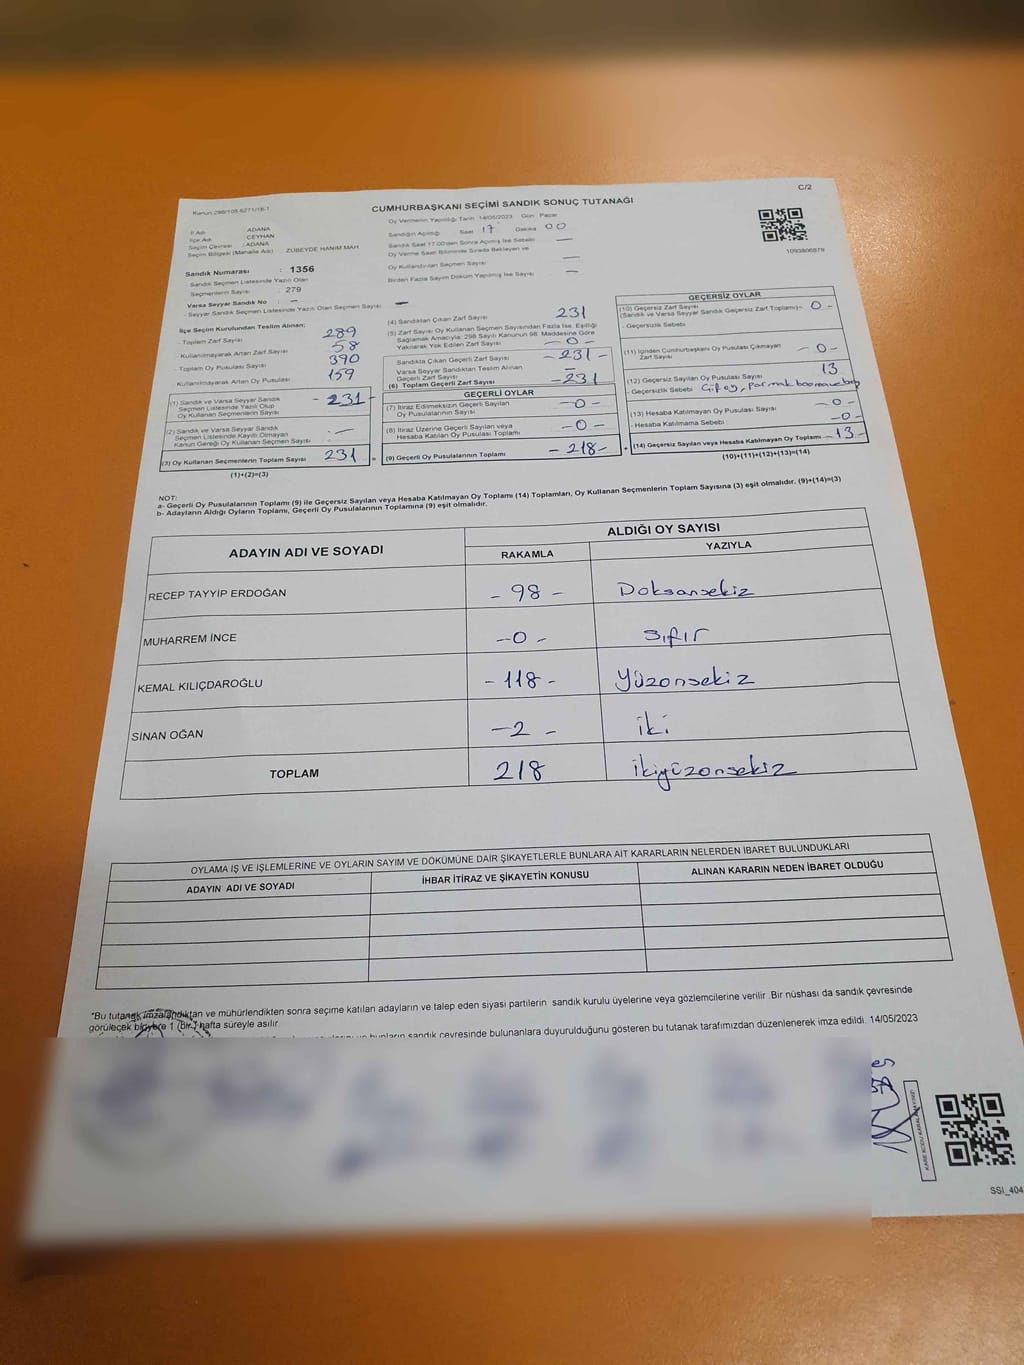 C/2
Kanun:298/105-6271/18-1
CUMHURBAŞKANI SEÇİMİ SANDIK SONUÇ TUTANAĞI
İl Adı : ADANA
İlçe Adı : CEYHAN
Seçim Çevresi : ADANA
Seçim Bölgesi (Mahalle Adı) : ZÜBEYDE HANIM MAH
Sandık Numarası : 1356
Sandık Seçmen Listesinde Yazılı Olan
Seçmenlerin Sayısı : 279
Varsa Seyyar Sandık No : –
- Seyyar Sandık Seçmen Listesinde Yazılı Olan Seçmen Sayısı: –
Oy Vermenin Yapıldığı Tarih 14/05/2023 Gün Pazar
Sandığın Açıldığı Saat 17 Dakika 00
Sandık Saat 17.00'den Sonra Açılmış İse Sebebi —
Oy Verme Saati Bitiminde Sırada Bekleyen ve
Oy Kullandırılan Seçmen Sayısı —
Birden Fazla Sayım Döküm Yapılmış İse Sayısı —
1093806879
İlçe Seçim Kurulundan Teslim Alınan;
- Toplam Zarf Sayısı 289
- Kullanılmayarak Artan Zarf Sayısı 58
- Toplam Oy Pusulası Sayısı 390
Kullanılmayarak Artan Oy Pusulası 159
(1) Sandık ve Varsa Seyyar Sandık
Seçmen Listesinde Yazılı Olup
Oy Kullanan Seçmenlerin Sayısı - 231 -
(2) Sandık ve Varsa Seyyar Sandık
Seçmen Listesinde Kayıtlı Olmayan
Kanun Gereği Oy Kullanan Seçmen Sayısı : —
(3) Oy Kullanan Seçmenlerin Toplam Sayısı 231 =
(1)+(2)=(3)
(4) Sandıktan Çıkan Zarf Sayısı 231
(5) Zarf Sayısı Oy Kullanan Seçmen Sayısından Fazla İse, Eşitliği
Sağlamak Amacıyla; 298 Sayılı Kanunun 98. Maddesine Göre
Yakılarak Yok Edilen Zarf Sayısı - 0 -
Sandıkta Çıkan Geçerli Zarf Sayısı - 231 -
Varsa Seyyar Sandıktan Teslim Alınan
Geçerli Zarf Sayısı –
(6) Toplam Geçerli Zarf Sayısı - 231
GEÇERLİ OYLAR
(7) İtiraz Edilmeksizin Geçerli Sayılan
Oy Pusulalarının Sayısı - 0 -
(8) İtiraz Üzerine Geçerli Sayılan veya
Hesaba Katılan Oy Pusulası Toplamı - 0 -
(9) Geçerli Oy Pusulalarının Toplamı - 218 - +
GEÇERSİZ OYLAR
(10) Geçersiz Zarf Sayısı
(Sandık ve Varsa Seyyar Sandık Geçersiz Zarf Toplamı) - 0 -
- Geçersizlik Sebebi
(11) İçinden Cumhurbaşkanı Oy Pusulası Çıkmayan
Zarf Sayısı - 0 -
(12) Geçersiz Sayılan Oy Pusulası Sayısı 13
- Geçersizlik Sebebi Çift oy, parmak
(13) Hesaba Katılmayan Oy Pusulası Sayısı - 0 -
- Hesaba Katılmama Sebebi - 0 -
(14) Geçersiz Sayılan veya Hesaba Katılmayan Oy Toplamı - 13 -
(10)+(11)+(12)+(13)=(14)
NOT:
a- Geçerli Oy Pusulalarının Toplamı (9) ile Geçersiz Sayılan veya Hesaba Katılmayan Oy Toplamı (14) Toplamları, Oy Kullanan Seçmenlerin Toplam Sayısına (3) eşit olmalıdır. (9)+(14)=(3)
b- Adayların Aldığı Oyların Toplamı, Geçerli Oy Pusulalarının Toplamına (9) eşit olmalıdır.
ADAYIN ADI VE SOYADI ALDIĞI OY SAYISI
RAKAMLA YAZIYLA
RECEP TAYYİP ERDOĞAN - 98 - Doksansekiz
MUHARREM İNCE - 0 - Sıfır
KEMAL KILIÇDAROĞLU - 118 - Yüzonsekiz
SİNAN OĞAN - 2 - iki
TOPLAM 218 ikiyüzonsekiz
OYLAMA İŞ VE İŞLEMLERİNE VE OYLARIN SAYIM VE DÖKÜMÜNE DAİR ŞİKAYETLERLE BUNLARA AİT KARARLARIN NELERDEN İBARET BULUNDUKLARI
ADAYIN ADI VE SOYADI İHBAR İTİRAZ VE ŞİKAYETİN KONUSU ALINAN KARARIN NEDEN İBARET OLDUĞU
"Bu tutanak imzalandıktan ve mühürlendikten sonra seçime katılan adayların ve talep eden siyasi partilerin sandık kurulu üyelerine veya gözlemcilerine verilir .Bir nüshası da sandık çevresinde
görülecek bir yere 1 (bir ) hafta süreyle asılır.
bunların sandık çevresinde bulunanlara duyurulduğunu gösteren bu tutanak tarafımızdan düzenlenerek imza edildi. 14/05/2023
SSİ_404